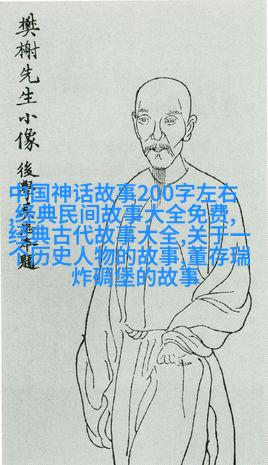 樊榭先生小像
後學
題
中国神话故事200字左右
,经典民间故事大全免费,
经典古代故事大全,关于一
个历史人物的故事,董存瑞
炸碉堡的故事